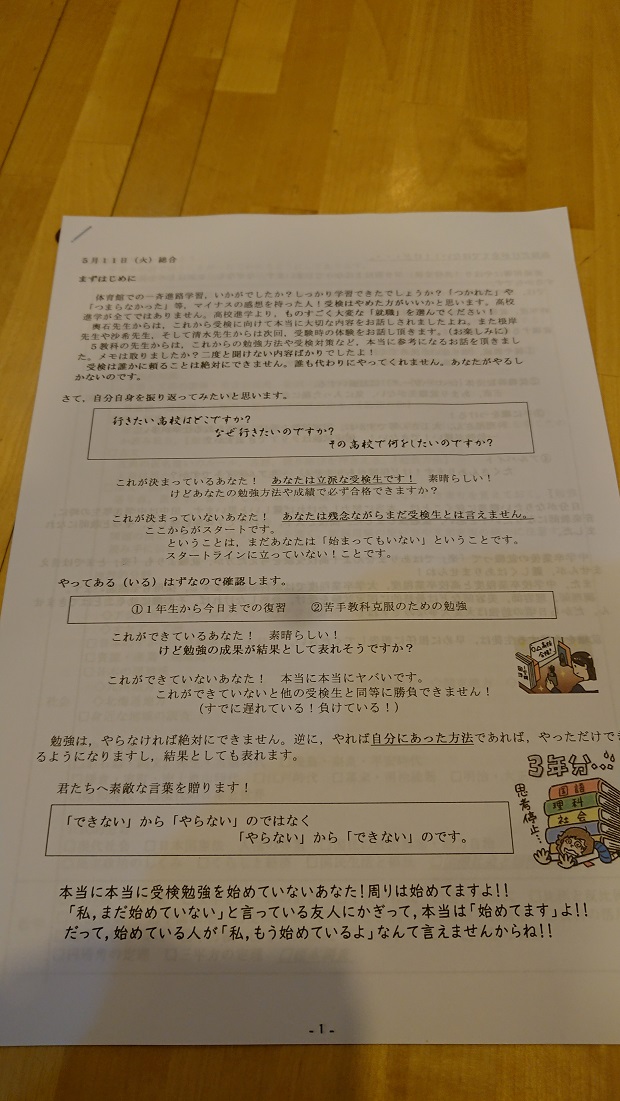 5月11日（火）総合
まずはじめに
体育館での一斉進路学習，いかがでしたか？しっかり学習できたでしょうか？「つかれた」や
「つまらなかった」等，マイナスの感想を持った人！受検はやめた方がいいかと思います。高校
進学が全てではありません。高校進学より，ものすごく大変な「就職」を選んでください！
輿石先生からは，これから受検に向けて本当に大切な内容をお話しされましたよね。また根岸
先生や沙希先生，そして清水先生からは次回，受験時の体験をお話し頂きます。（お楽しみに）
５教科の先生からは，これからの勉強方法や受検対策など，本当に参考になるお話を頂きまし
た。メモは取りましたか？二度と聞けない内容ばかりでしたよ！
受検は誰かに頼ることは絶対にできません。誰も代わりにやってくれません。あなたがやるし
かないのです。
さて，自分自身を振り返ってみたいと思います。
行きたい高校はどこですか？
なぜ行きたいのですか？
その高校で何をしたいのですか？
これが決まっているあなた！　あなたは立派な受検生です！　素晴らしい！
けどあなたの勉強方法や成績で必ず合格できますか？
これが決まっていないあなた！　あなたは残念ながらまだ受検生とは言えません。
ここからがスタートです。
ということは，まだあなたは「始まってもいない」ということです。
スタートラインに立っていない！ことです。
やってある（いる）はずなので確認します。
①１年生から今日までの復習　②苦手教科克服のための勉強
これができているあなた！　素晴らしい！
けど勉強の成果が結果として表れそうですか？
これができていないあなた！　本当に本当にヤバいです。
これができていないと他の受検生と同等に勝負できません！
（すでに遅れている！負けている！）
勉強は，やらなければ絶対にできません。逆に，やれば自分にあった方法であれば，やっただけで
るようになりますし，結果としても表れます。
君たちへ素敵な言葉を贈ります！
「できない」から「やらない」のではなく
「やらない」から「できない」のです。
3年分…
国語
理科
社会
思考停止…
本当に本当に受検勉強を始めていないあなた！周りは始めてますよ！！
「私，まだ始めていない」と言っている友人にかぎって，本当は「始めてます」よ！！
だって，始めている人が「私，もう始めているよ」なんて言えませんからね！！
- 1 -